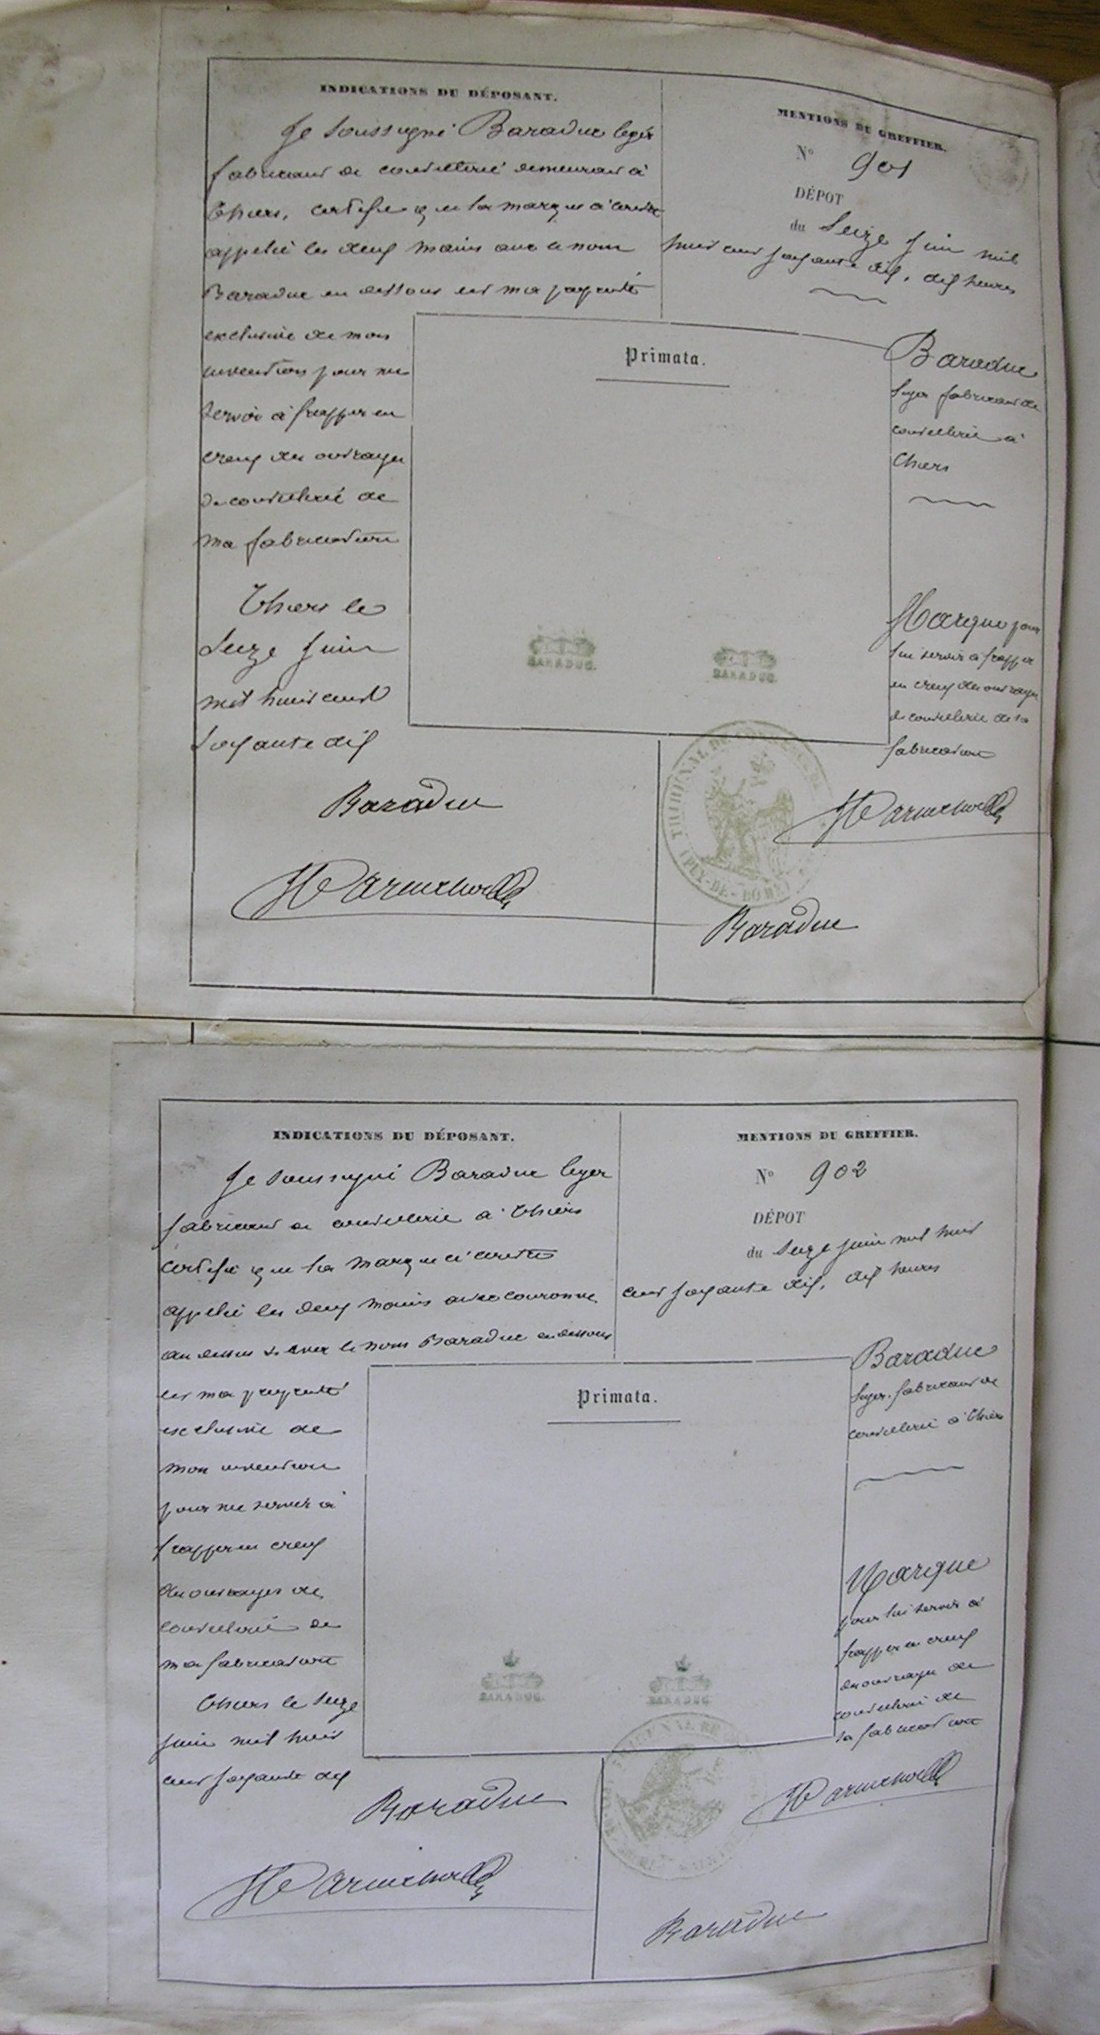 INDICATIONS DU DÉPOSANT.
Je soussigné Baraduc leger
fabricant de coutellerie demeurant à
Thiers, certifie que la marque ci contre
appelée les deux mains avec le nom
Baraduc en dessous est ma propriété
exclusive de mon
invention pour me
servir à frapper en
creux des ouvrages
de coutellerie de
ma fabrication
Thiers le
Seize Juin
mil huit cent
soixante dix
Baraduc
MENTIONS DU GREFFIER.
N° 901
DÉPOT
du Seize Juin mil
huit cent soixante dix, dix heures
Primata.
BARADUC.
BARADUC.
Baraduc
leger fabricant de
coutellerie à
Thiers
Marque pour
lui servir à frapper
en creux des ouvrages
de coutellerie de sa
fabrication
TRIBUNAL DE COMMERCE DE
(PUY-DE-DOME)
Baraduc
INDICATIONS DU DÉPOSANT.
Je soussigné Baraduc leger
fabricant de coutellerie à Thiers
certifie que la marque ci contre
appelée les deux mains avec couronne
au dessus & avec le nom Baraduc en dessous
est ma propriété
exclusive de
mon invention
pour me servir à
frapper en creux
des ouvrages de
coutellerie de
ma fabrication
Thiers le Seize
Juin mil huit
cent soixante dix
Baraduc
MENTIONS DU GREFFIER.
N° 902
DÉPOT
du Seize juin mil huit
cent soixante dix, dix heures
Primata.
BARADUC.
BARADUC
Baraduc
leger fabricant de
coutellerie à Thiers
Marque
pour lui servir à
frapper en creux
des ouvrages de
coutellerie de
sa fabrication
TRIBUNAL DE
Baraduc